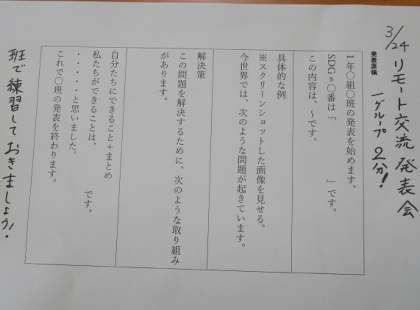 3/24 リモート交流発表会
一グループ2分！
発表原稿
1年〇組〇班の発表を始めます。
SDGs〇番は「　　　　」です。
この内容は、~です。
具体的な例
※スクリーンショットした画像を見せる。
今世界では、次のような問題が起きています。
解決策
この問題を解決するために、次のような取り組み
があります。
自分たちにできること+まとめ
私たちができることは、　　　　です。
・・・・・と思いました。
これで〇班の発表を終わります。
班で練習しておきましょう！